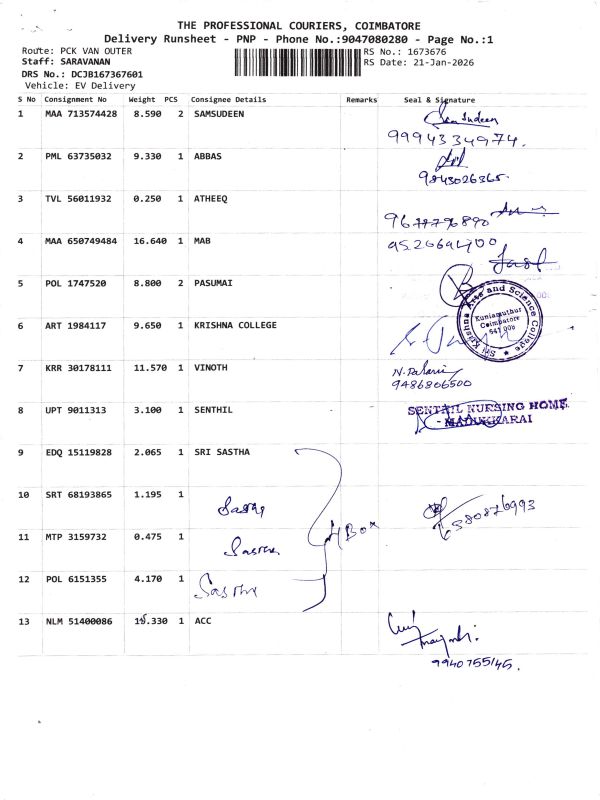 THE PROFESSIONAL COURIERS, COIMBATORE
Delivery Runsheet - PNP - Phone No.:9047080280 - Page No.:1
Route: PCK VAN OUTER
RS No.: 1673676
Staff: SARAVANAN
RS Date: 21-Jan-2026
DRS No.: DCJB167367601
Vehicle: EV Delivery
S No Consignment No Weight PCS Consignee Details Remarks Seal & Signature
1 MAA 713574428 8.590 2 SAMSUDEEN Samsudeen
9994334974.
2 PML 63735032 9.330 1 ABBAS
9843026365.
3 TVL 56011932 0.250 1 ATHEEQ
4 MAA 650749484 16.640 1 MAB
5 POL 1747520 8.800 2 PASUMAI
Sri Krishna Arts and Science College
Kuniamuthur
Coimbatore
641 008
6 ART 1984117 9.650 1 KRISHNA COLLEGE
7 KRR 30178111 11.570 1 VINOTH
9486806500
8 UPT 9011313 3.100 1 SENTHIL SENTHIL NURSING HOME
- MADUKKARAI
9 EDQ 15119828 2.065 1 SRI SASTHA
10 SRT 68193865 1.195 1 Sastha
6380876993
4 Box
11 MTP 3159732 0.475 1 Sastha
12 POL 6151355 4.170 1 Sastha
13 NLM 51400086 1.330 1 ACC
9940755145.